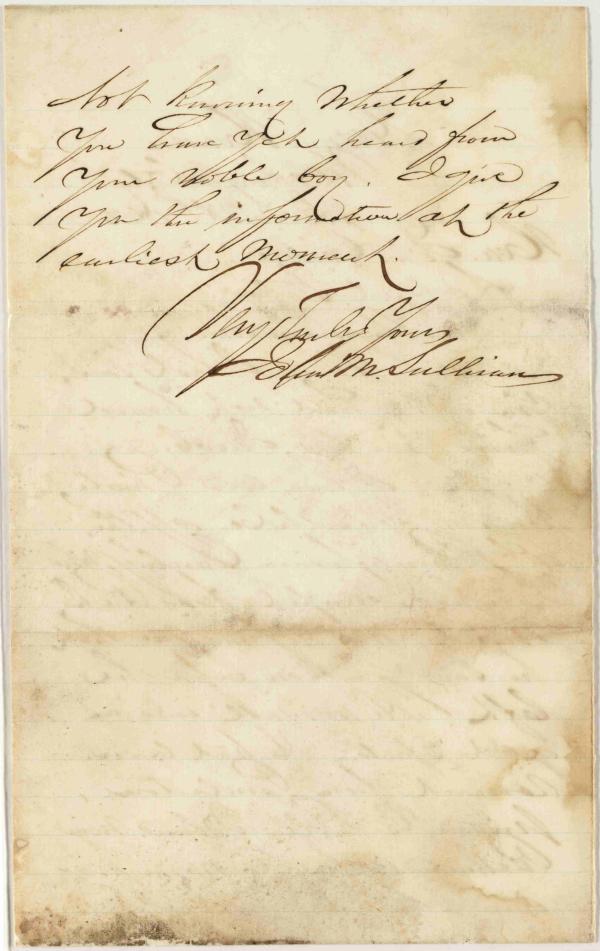 Not knowing whether
you have yet heard from
your noble boy. I give
you the information at the
earliest moment.
Very Truly Yours
John M. Sullivan